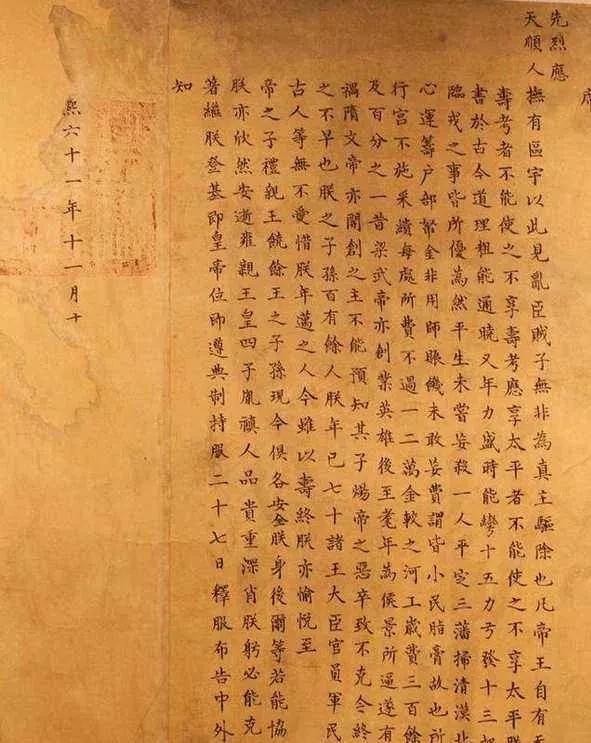 席
先烈應
天順人撫有區宇以此見亂臣賊子無非為真主驅除也凡帝王自有天
壽考者不能使之不享壽考應享太平者不能使之不享太平朕
書於古今道理粗能通曉又年力盛時能彎十五力弓發十三把
臨戎之事皆所優為然平生未嘗妄殺一人平定三藩掃清漠北
心運籌戶部帑金非用師賑饑未敢妄費謂皆小民脂膏故也所
行宮不施采繢每處所費不過一二萬金較之河工歲費三百餘
及百分之一昔梁武帝亦創業英雄後至耄年為侯景所逼遂有
禍隋文帝亦開創之主不能預知其子煬帝之惡卒致不克令終
之不早也朕之子孫百有餘人朕年已七十諸王大臣官員軍民
古人等無不愛惜朕年邁之人今雖以壽終朕亦愉悅至
帝之子禮親王饒餘王之子孫現今俱各安全朕身後爾等若能協
朕亦欣然安逝雍親王皇四子胤禛人品貴重深肖朕躬必能克
著繼朕登基即皇帝位即遵典制持服二十七日釋服布告中外
知
熙六十一年十一月十